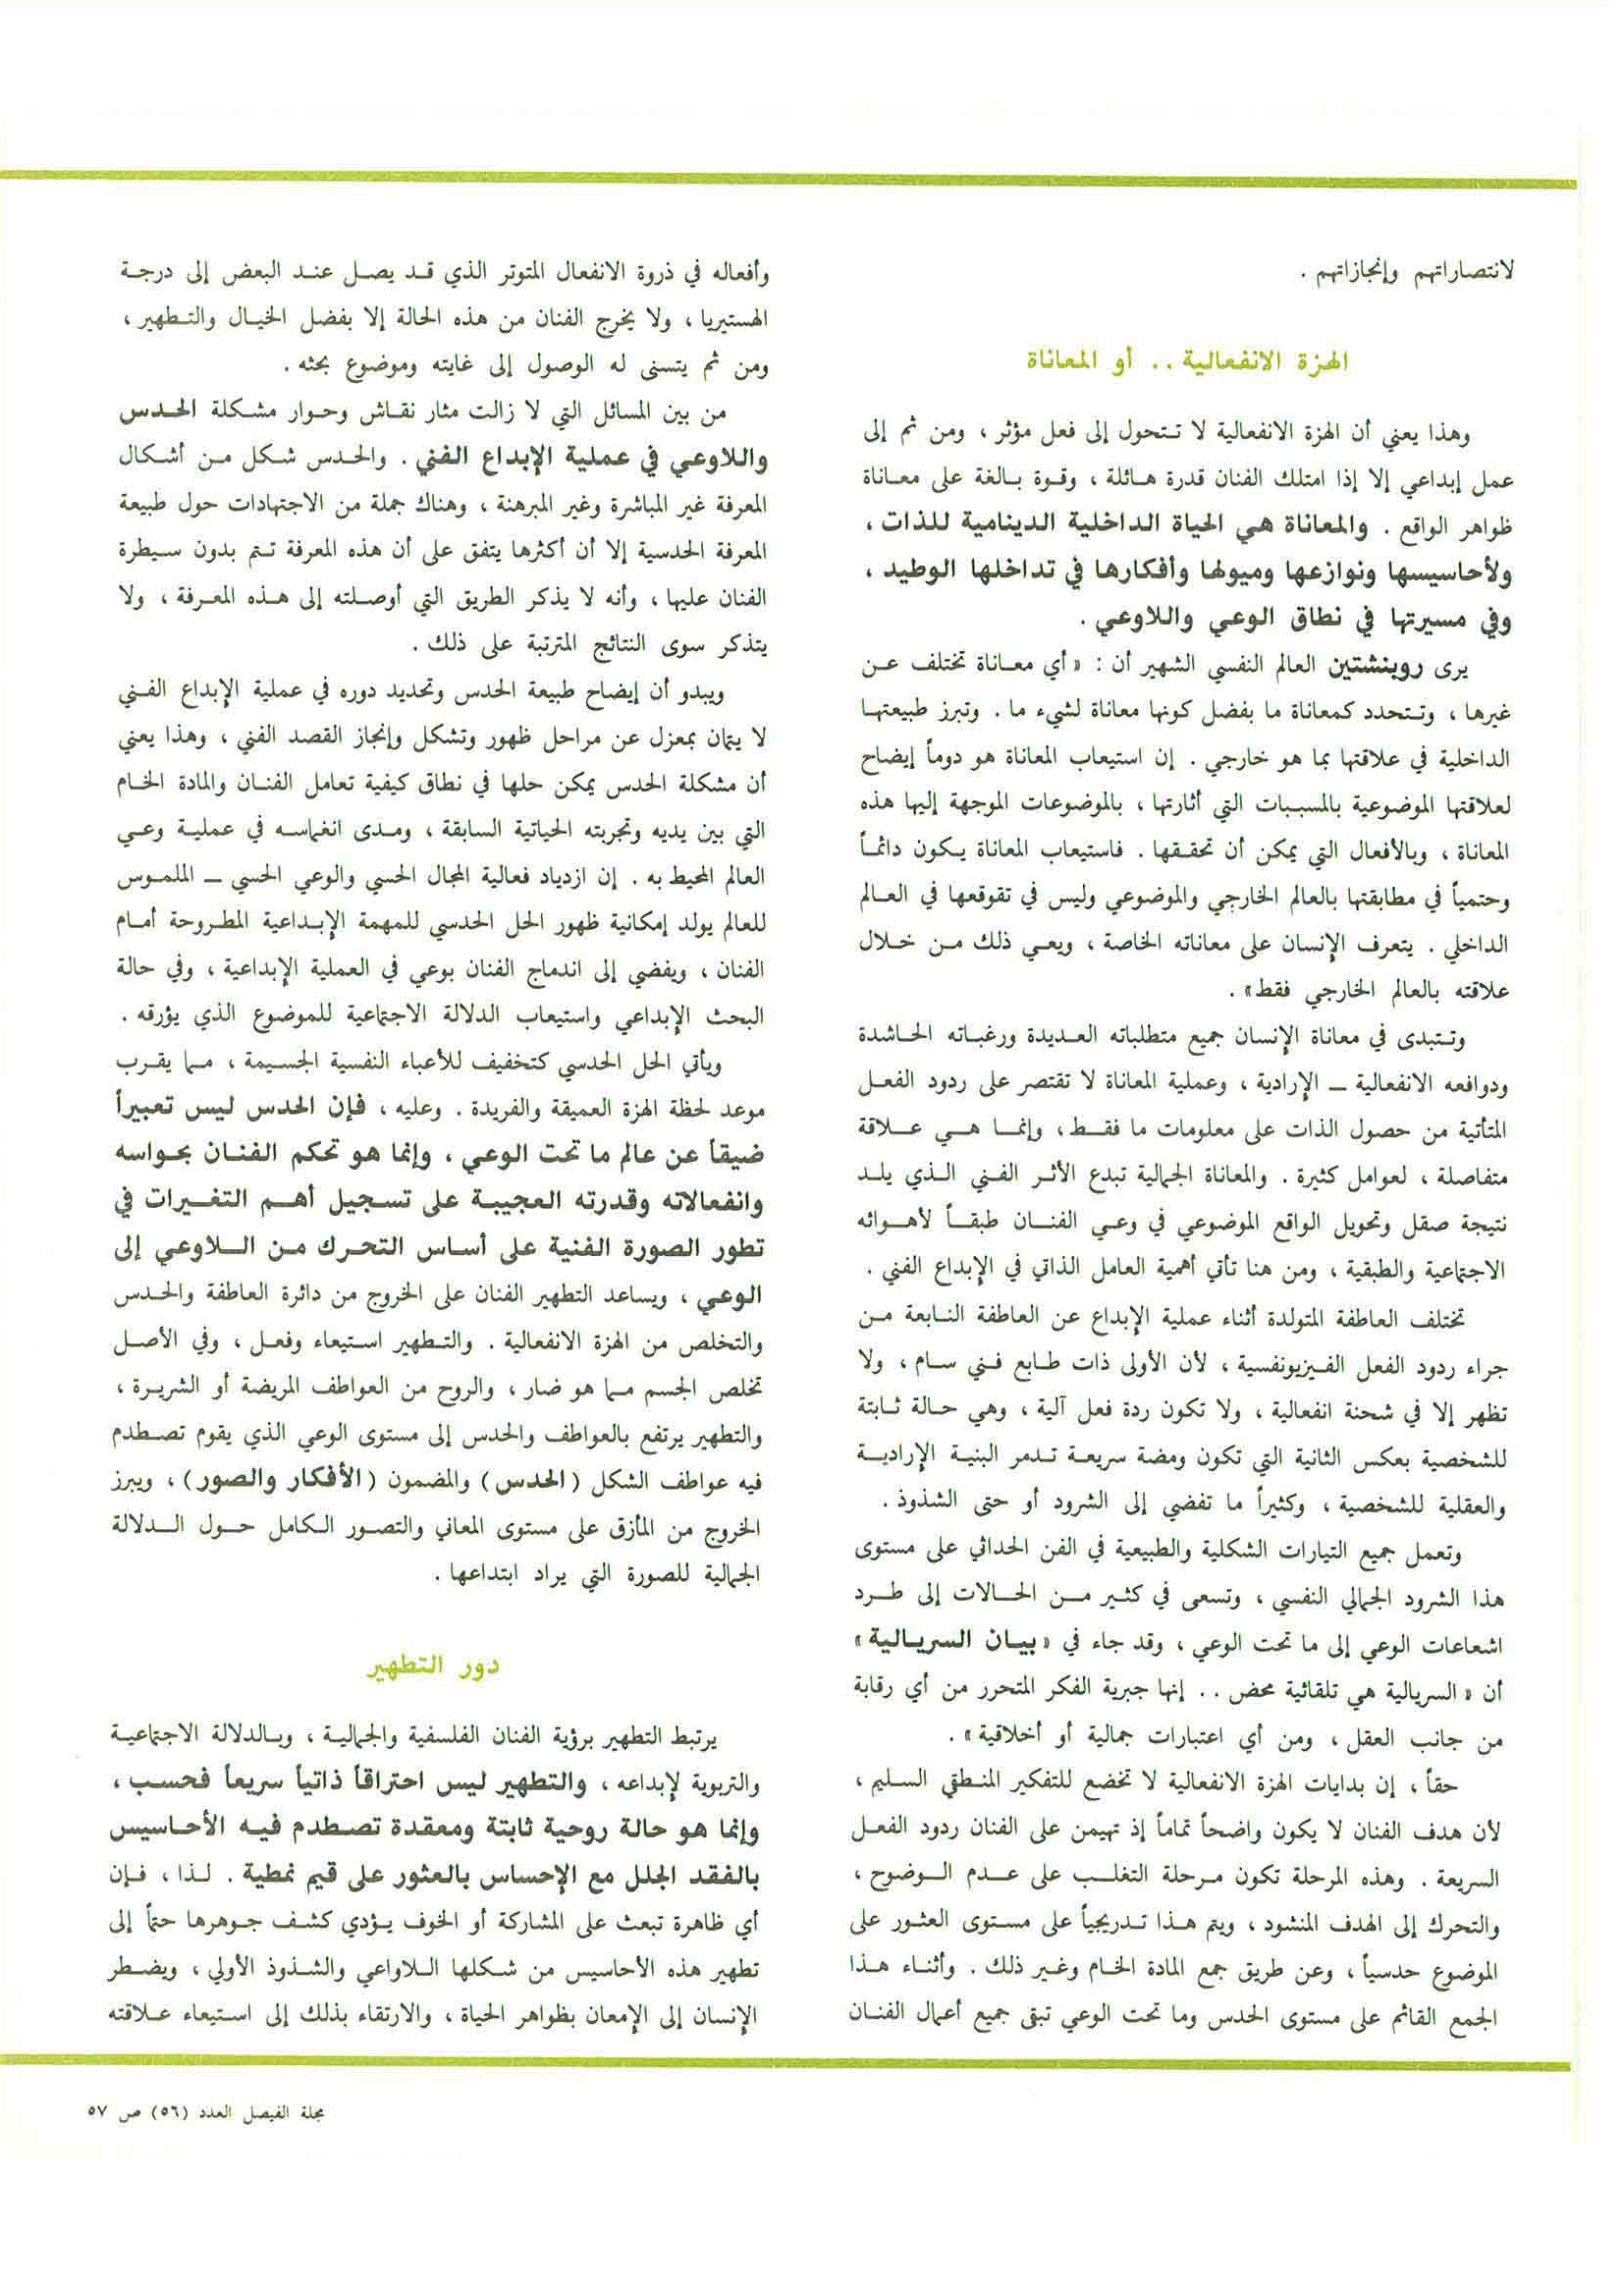 لانتصاراتهم وإنجازاتهم .
الهزة الانفعالية . . أو المعاناة
وهذا يعني أن الهزة الانفعالية لا تتحول إلى فعل مؤثر ، ومن ثم إلى
عمل إبداعي إلا إذا امتلك الفنان قدرة هائلة ، وقوة بالغة على معاناة
ظواهر الواقع . والمعاناة هي الحياة الداخلية الدينامية للذات ،
ولأحاسيسها ونوازعها وميولها وأفكارها في تداخلها الوطيد ،
وفي مسيرتها في نطاق الوعي واللاوعي .
يرى روبنشتين العالم النفسي الشهير أن : « أي معاناة تختلف عن
غيرها ، وتتحدد كمعاناة ما بفضل كونها معاناة لشيء ما . وتبرز طبيعتها
الداخلية في علاقتها بما هو خارجي . إن استيعاب المعاناة هو دوماً إيضاح
لعلاقتها الموضوعية بالمسببات التي أثارتها ، بالموضوعات الموجهة إليها هذه
المعاناة ، وبالأفعال التي يمكن أن تحققها . فاستيعاب المعاناة يكون دائماً
وحتمياً في مطابقتها بالعالم الخارجي والموضوعي وليس في تقوقعها في العالم
الداخلي . يتعرف الإنسان على معاناته الخاصة ، ويعي ذلك من خلال
علاقته بالعالم الخارجي فقط» .
وتتبدى في معاناة الإنسان جميع متطلباته العديدة ورغباته الحاشدة
ودوافعه الانفعالية ــ الإرادية ، وعملية المعاناة لا تقتصر على ردود الفعل
المتأتية من حصول الذات على معلومات ما فقط ، وإنما هي علاقة
متفاصلة ، لعوامل كثيرة . والمعاناة الجمالية تبدع الأثر الفني الذي يلد
نتيجة صقل وتحويل الواقع الموضوعي في وعي الفنان طبقاً لأهوائه
الاجتماعية والطبقية ، ومن هنا تأتي أهمية العامل الذاتي في الإبداع الفني .
تختلف العاطفة المتولدة أثناء عملية الإبداع عن العاطفة النابعة من
جراء ردود الفعل الفيزيونفسية ، لأن الأولى ذات طابع فني سام ، ولا
تظهر إلا في شحنة انفعالية ، ولا تكون ردة فعل آلية ، وهي حالة ثابتة
للشخصية بعكس الثانية التي تكون ومضة سريعة تدمر البنية الإرادية
والعقلية للشخصية ، وكثيراً ما تفضي إلى الشرود أو حتى الشذوذ .
وتعمل جميع التيارات الشكلية والطبيعية في الفن الحداثي على مستوى
هذا الشرود الجمالي النفسي ، وتسعى في كثير من الحالات إلى طرد
اشعاعات الوعي إلى ما تحت الوعي ، وقد جاء في « بيان السريالية »
أن « السريالية هي تلقائية محض . . إنها جبرية الفكر المتحرر من أي رقابة
من جانب العقل ، ومن أي اعتبارات جمالية أو أخلاقية » .
حقاً ، إن بدايات الهزة الانفعالية لا تخضع للتفكير المنطقي السليم ،
لأن هدف الفنان لا يكون واضحاً تماماً إذ تهيمن على الفنان ردود الفعل
السريعة . وهذه المرحلة تكون مرحلة التغلب على عدم الوضوح ،
والتحرك إلى الهدف المنشود ، ويتم هذا تدريجياً على مستوى العثور على
الموضوع حدسياً ، وعن طريق جمع المادة الخام وغير ذلك . وأثناء هذا
الجمع القائم على مستوى الحدس وما تحت الوعي تبقى جميع أعمال الفنان
وأفعاله في ذروة الانفعال المتوتر الذي قد يصل عند البعض إلى درجة
الهستيريا ، ولا يخرج الفنان من هذه الحالة إلا بفضل الخيال والتطهير ،
ومن ثم يتسنى له الوصول إلى غايته وموضوع بحثه .
من بين المسائل التي لا زالت مثار نقاش وحوار مشكلة الحدس
واللاوعي في عملية الإبداع الفني . والحدس شكل من أشكال
المعرفة غير المباشرة وغير المبرهنة ، وهناك جملة من الاجتهادات حول طبيعة
المعرفة الحدسية إلا أن أكثرها يتفق على أن هذه المعرفة تتم بدون سيطرة
الفنان عليها ، وأنه لا يذكر الطريق التي أوصلته إلى هذه المعرفة ، ولا
يتذكر سوى النتائج المترتبة على ذلك .
ويبدو أن إيضاح طبيعة الحدس وتحديد دوره في عملية الإبداع الفني
لا يتمان بمعزل عن مراحل ظهور وتشكل وإنجاز القصد الفني ، وهذا يعني
أن مشكلة الحدس يمكن حلها في نطاق كيفية تعامل الفنان والمادة الخام
التي بين يديه وتجربته الحياتية السابقة ، ومدى انغماسه في عملية وعي
العالم المحيط به . إن ازدياد فعالية المجال الحسي والوعي الحسي ــ الملموس
للعالم يولد إمكانية ظهور الحل الحدسي للمهمة الإبداعية المطروحة أمام
الفنان ، ويفضي إلى اندماج الفنان بوعي في العملية الإبداعية ، وفي حالة
البحث الإبداعي واستيعاب الدلالة الاجتماعية للموضوع الذي يؤرقه .
ويأتي الحل الحدسي كتخفيف للأعباء النفسية الجسيمة ، مما يقرب
موعد لحظة الهزة العميقة والفريدة . وعليه ، فإن الحدس ليس تعبيراً
ضيقاً عن عالم ما تحت الوعي ، وإنما هو تحكم الفنان بحواسه
وانفعالاته وقدرته العجيبة على تسجيل أهم التغيرات في
تطور الصورة الفنية على أساس التحرك من اللاوعي إلى
الوعي ، ويساعد التطهير الفنان على الخروج من دائرة العاطفة والحدس
والتخلص من الهزة الانفعالية . والتطهير استيعاء وفعل ، وفي الأصل
تخلص الجسم مما هو ضار ، والروح من العواطف المريضة أو الشريرة ،
والتطهير يرتفع بالعواطف والحدس إلى مستوى الوعي الذي يقوم تصطدم
فيه عواطف الشكل ( الحدس ) والمضمون ( الأفكار والصور ) ، ويبرز
الخروج من المأزق على مستوى المعاني والتصور الكامل حول الدلالة
الجمالية للصورة التي يراد ابتداعها .
دور التطهير
يرتبط التطهير برؤية الفنان الفلسفية والجمالية ، وبالدلالة الاجتماعية
والتربوية لإبداعه ، والتطهير ليس احتراقاً ذاتياً سريعاً فحسب ،
وإنما هو حالة روحية ثابتة ومعقدة تصطدم فيه الأحاسيس
بالفقد الجلل مع الإحساس بالعثور على قيم نمطية . لذا ، فإن
أي ظاهرة تبعث على المشاركة أو الخوف يؤدي كشف جوهرها حتماً إلى
تطهير هذه الأحاسيس من شكلها اللاواعي والشذوذ الأولي ، ويضطر
الإنسان إلى الإمعان بظواهر الحياة ، والارتقاء بذلك إلى استيعاء علاقته
مجلة الفيصل العدد (٥٦) ص ٥٧